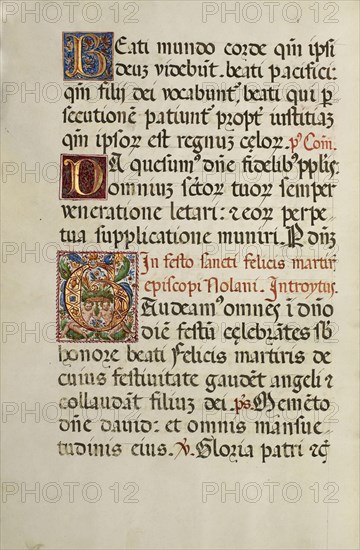 Beati mundo corde qm̄ ipsi
deuz videbūt. beati pacifici:
qm̄ filij dei vocabunt, beati qui p̱
secutionem patiunt̉ propt̉ iustitiaʒ
qm̄ ipsoꝝ est regnuʒ cęloꝝ. p̱ Com̄.
DA quesumꝰ dn̄e fidelibꝰ pp̄lis.
omniuʒ sc̄toꝝ tuoꝝ semper
veneratione letari: ⁊ eoꝝ perpe
tua supplicatione muniri. P dn̄ʒ
In festo sancti felicis martiris
episcopi Nolani. Introytus.
Gaudeamꝰ omnes ī dn̄o
diē festū cęlebrātes sb̄
honore beati Felicis martiris de
cuius festiuitate gaudēt angeli ⁊
collaudāt filiuʒ dei. p̄s. Memēto
dn̄e dauid: et omnis mansue
tudinis eius. ℣. Gloria patri ⁊c̄
PHOTO 12